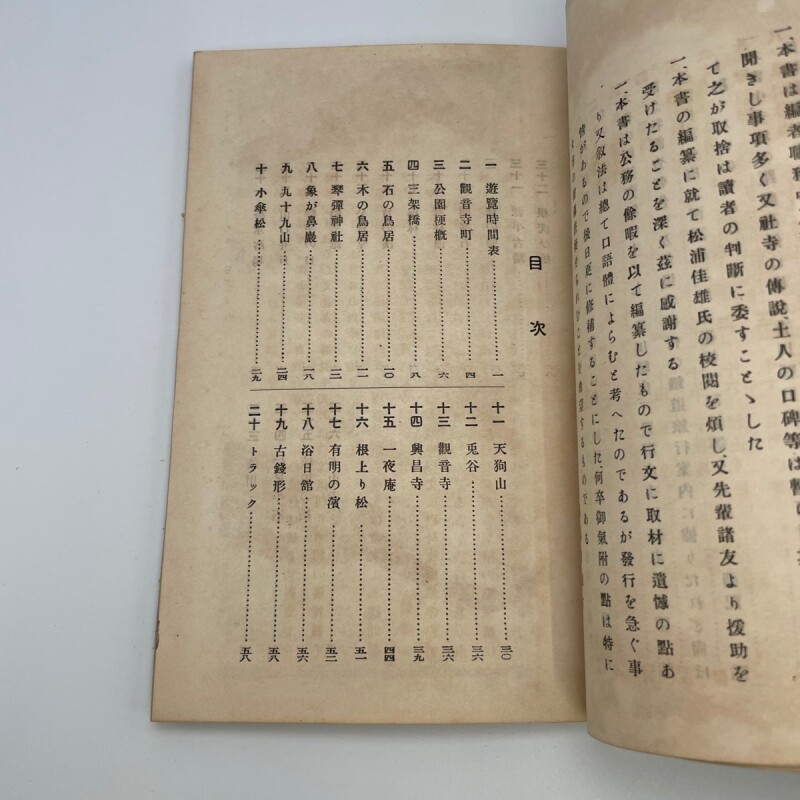 一、本書は編者職務中
聞きし事項多く又社寺の傳說、土人の口碑等は暫
て之が取捨は讀者の判斷に委すことゝした
一、本書の編纂に就て松浦佳雄氏の校閱を煩し、又先輩諸友より援助を
受けたることを深く茲に感謝する
一、本書は公務の餘暇を以て編纂したもので行文に取材に遺憾の點あ
り又敍法は總て口語體によらむと考へたのであるが發行を急ぐ事
情があるので後日更に修補することにした、何卒御氣附の點は特に
目次
一 遊覽時間表……一
二 觀音寺町……四
三 公園梗概……六
四 三架橋……八
五 石の鳥居……一〇
六 木の鳥居……一一
七 琴彈神社……一三
八 象が鼻巖……一八
九 九十九山……二四
十 小傘松……二九
十一 天狗山……三〇
十二 兎谷……三六
十三 觀音寺……三六
十四 興昌寺……三九
十五 一夜庵……四四
十六 根上り松……五一
十七 有明の濱……五二
十八 浴日館……五五
十九 古錢形……五八
二十 トラック……五八